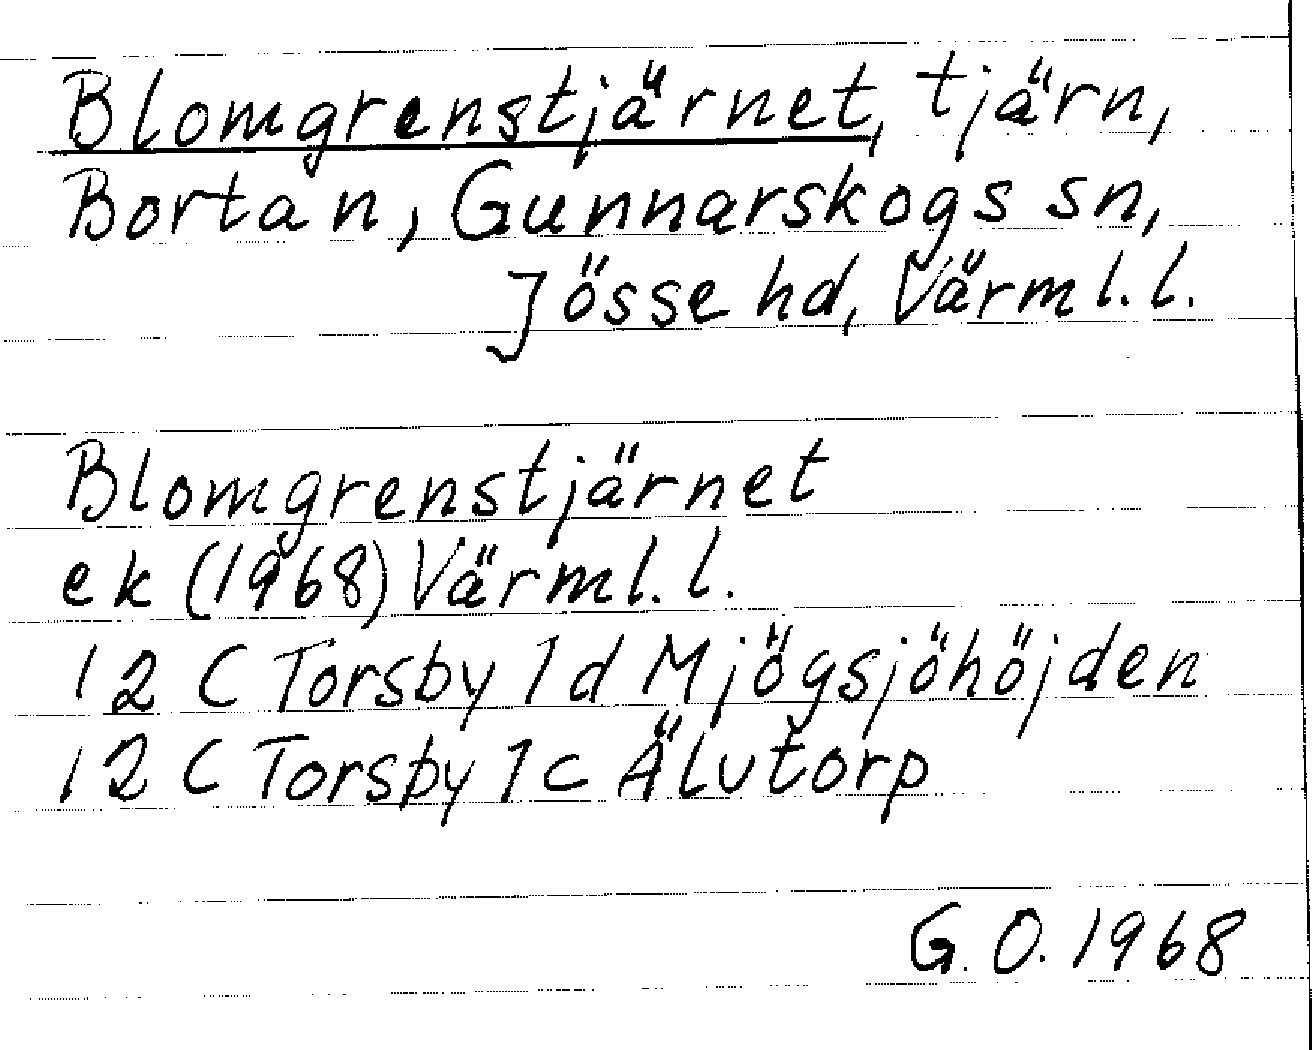 Blomgrenstjärnet, tjärn,
Bortan, Gunnarskogs sn,
Jösse hd, Värml. l.
Blomgrenstjärnet
ek (1968) Värml. l.
12 C Torsby 1 d Mjögsjöhöjden
12 C Torsby 1 c Älvtorp
G. O. 1968